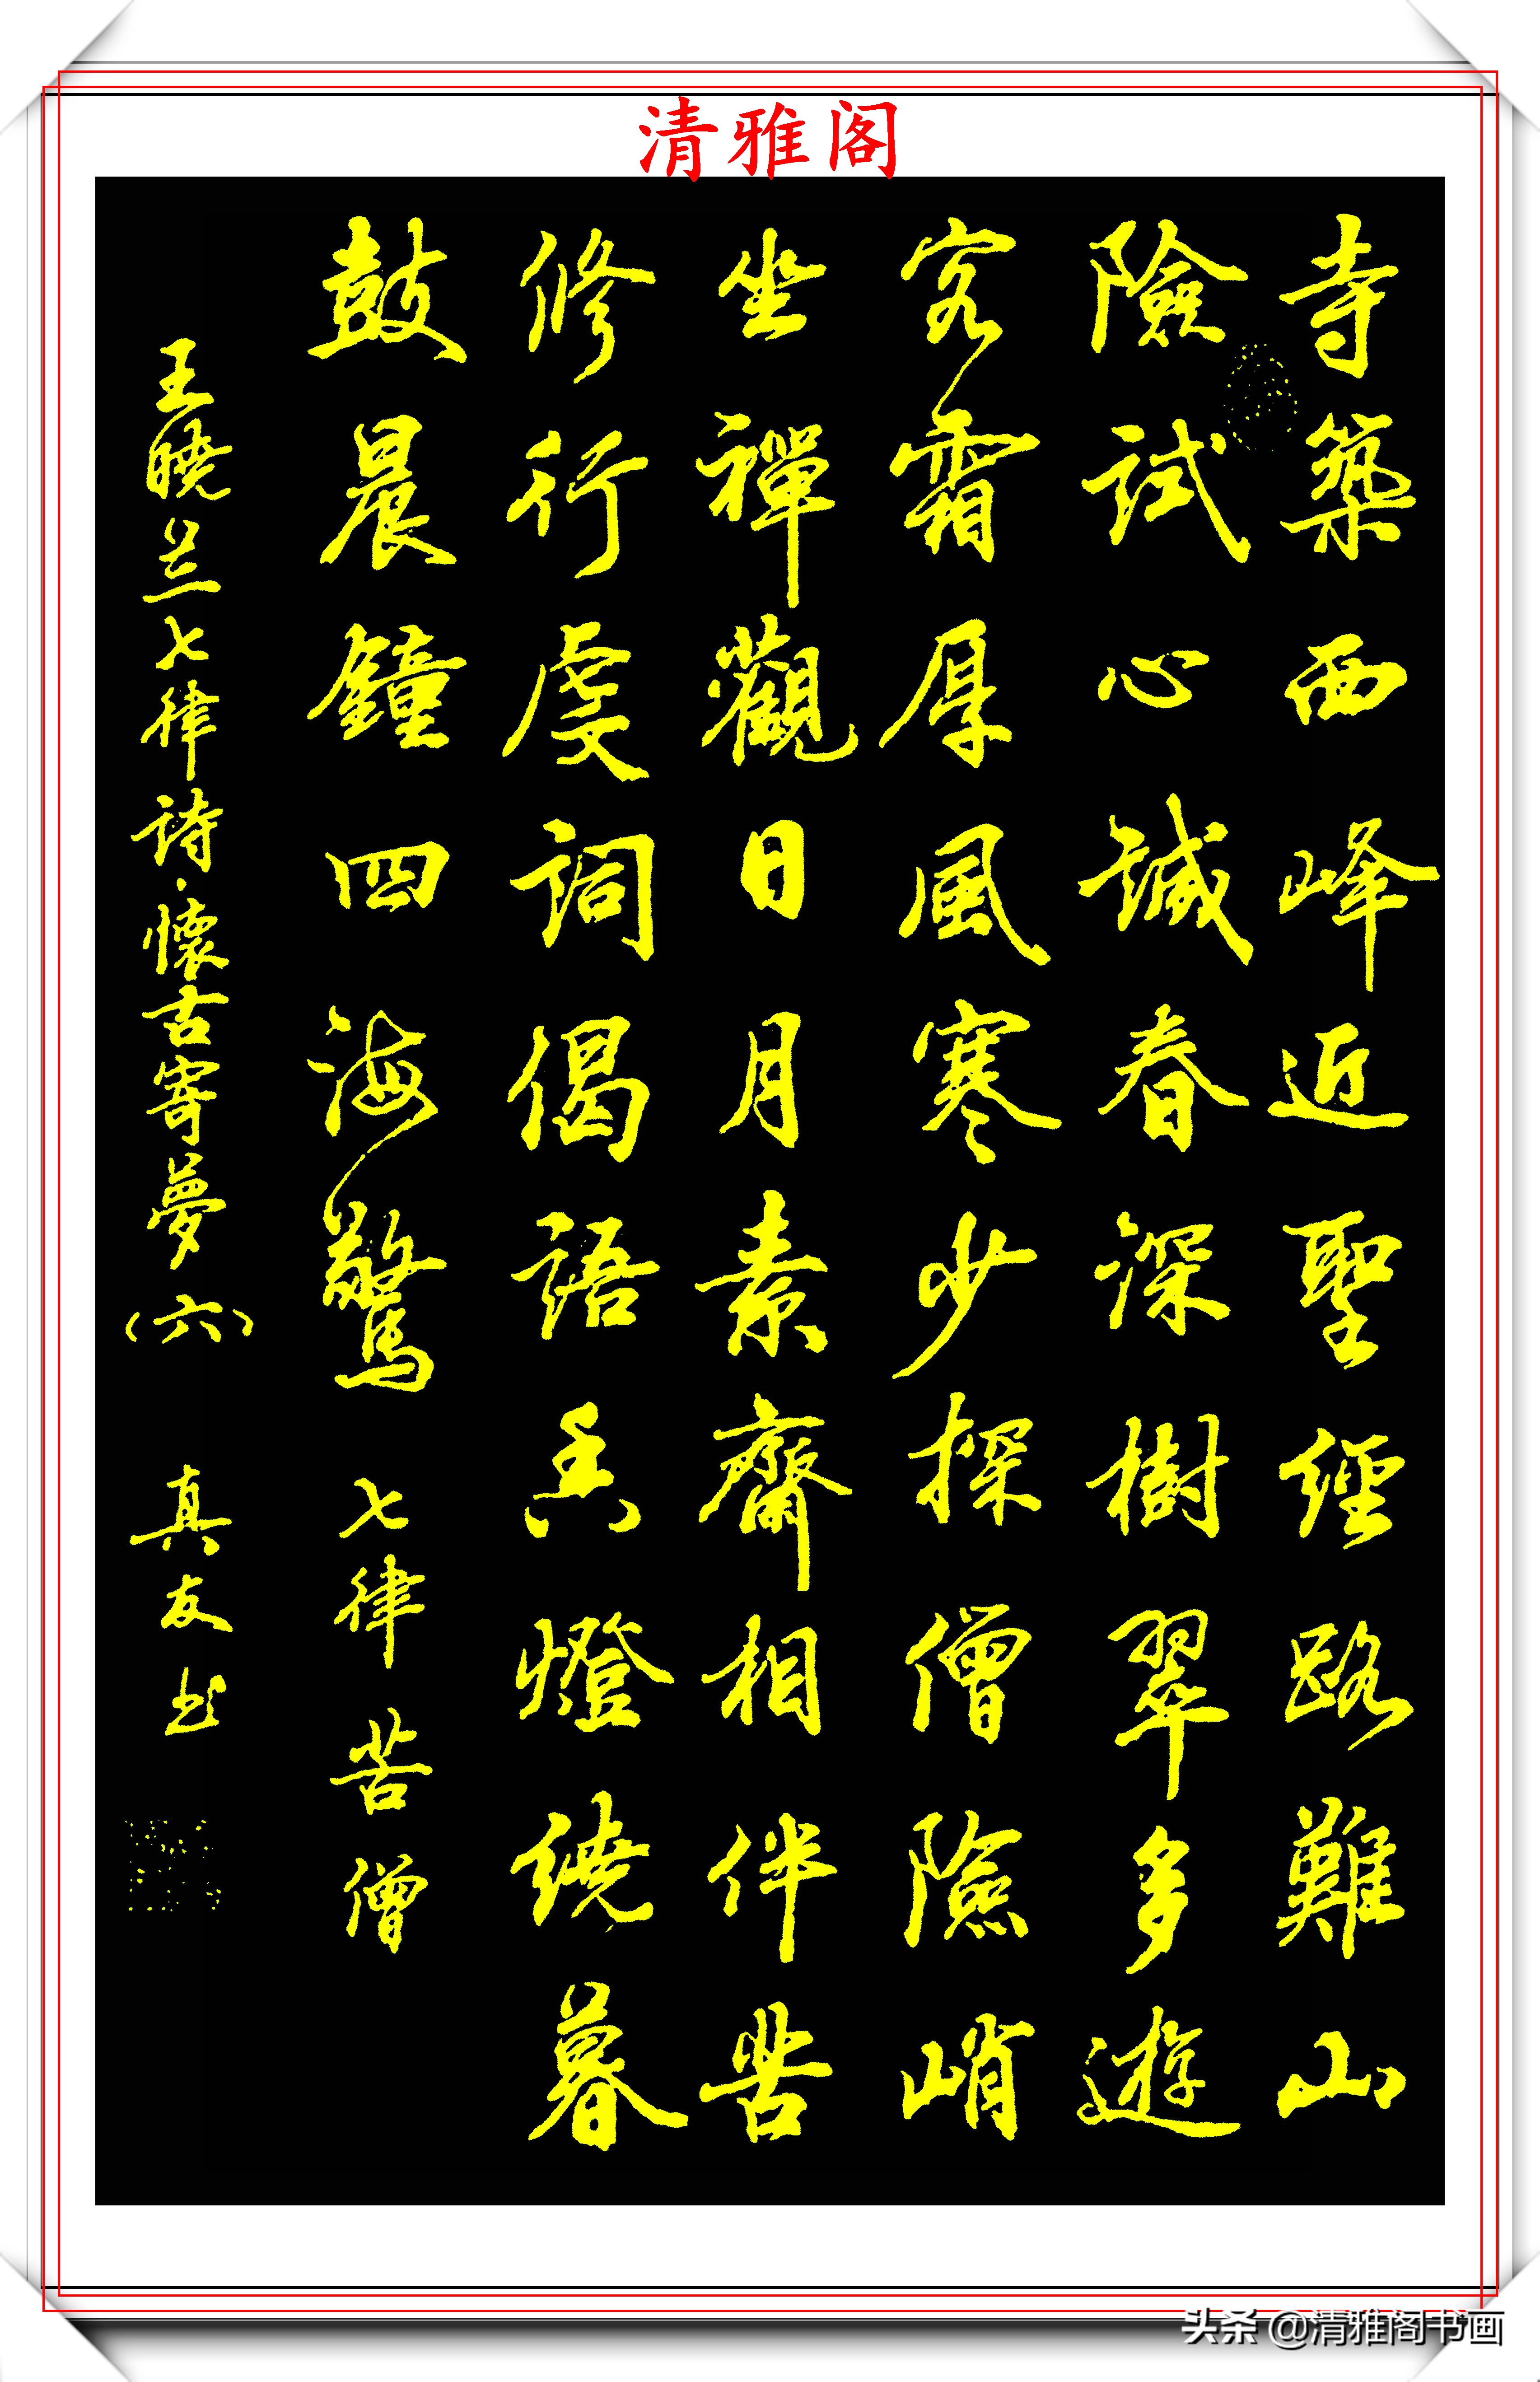 清雅阁
寺築西峰近聖經路難山
險試心誠春深樹翠多遊
客霜厚風寒少探僧險峭
坐禪觀日月素齋相伴苦
修行虔詞偈語香燈繞暮
鼓晨鐘四海驚 七律 苦僧
王曉兰七律诗·懷古寄夢(六) 真友书
头条 @清雅阁书画